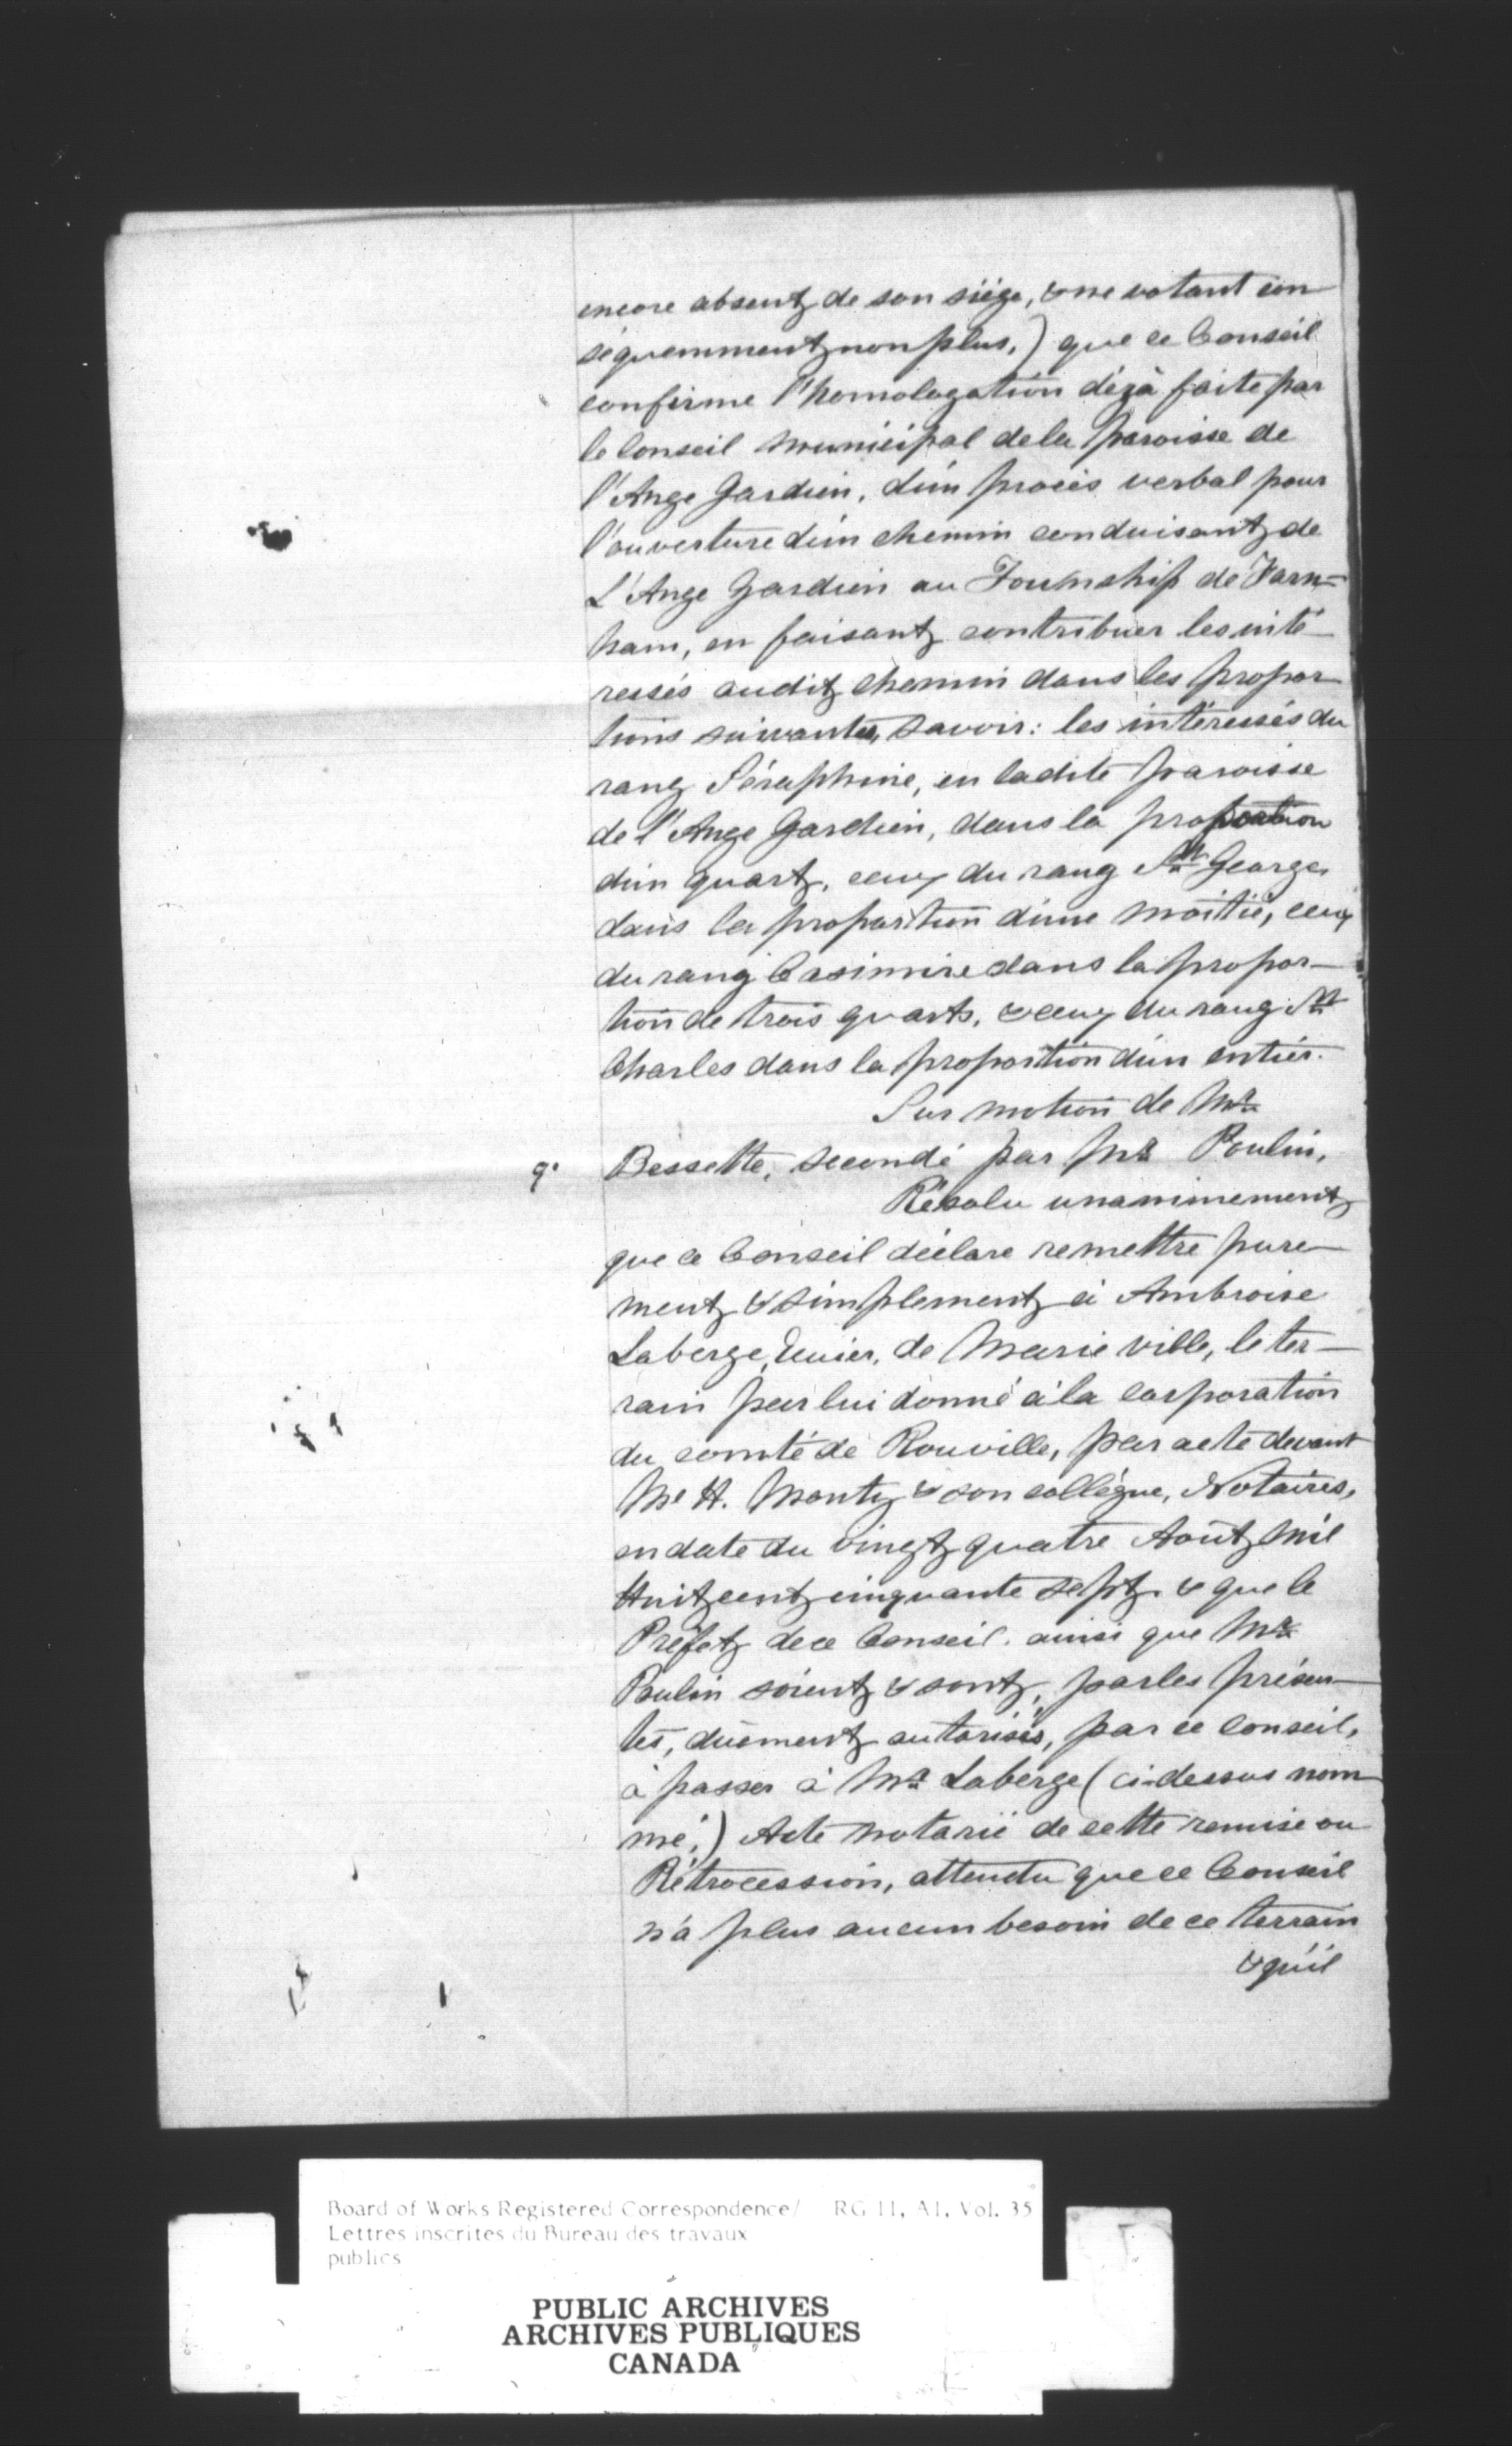 encore absent de son siége, & ne votant con
séquemment non plus,) que ce Conseil
confirme l'homologation déjà faite par
le Conseil municipal de la paroisse de
l'Ange Gardien, d'un procès verbal pour
l'ouverture d'un chemin conduisant de
L'Ange Gardien au Township de Farn=
ham, en faisant contribuer les inté-
ressés audit chemin dans les propor
tions suivantes, savoir: les intéressés du
rang Séraphine, en ladite paroisse
de l'Ange Gardien, dans la proportion
d'un quart, ceux du rang St George,
dans la proportion d'une moitié, ceux
du rang Casimire dans la propor-
tion de trois quarts, & ceux du rang St
Charles dans la proportion d'un entier.
Sur motion de Mr
9° Bessette, secondé par Mr Poulin,
Résolu unanimement
que ce Conseil déclare remettre pure-
ment & simplement à Ambroise
Laberge, de Marieville, le ter-
rain par lui donné à la corporation
du comté de Rouville, par acte devant
Me H. Monty & son collègue, Notaires,
en date du vingt quatre Août mil
huit cent cinquante sept, & que le
Préfet de ce Conseil, ainsi que Mr
Poulin soient & sont, par les présen-
tes, dûement autorisés, par ce conseil,
à passer à Mr Laberge (ci-dessus nom
mé,) Acte notarié de cette remise ou
Rétrocession, attendu que ce Conseil
n'a plus aucun besoin de ce terrain
& qu'il
Board of Works Registered Correspondence/ RG 11, A1, Vol. 35
Lettres inscrites du Bureau des travaux
publics
PUBLIC ARCHIVES
ARCHIVES PUBLIQUES
CANADA